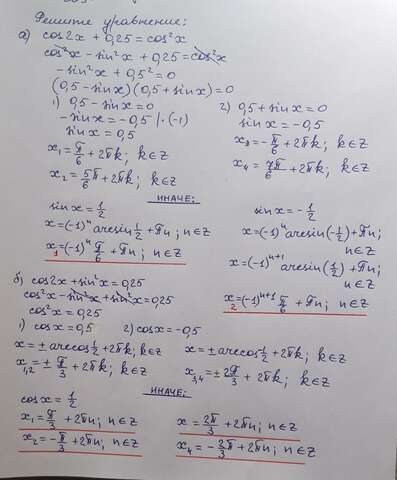 Решите уравнение:
а) cos2x + 0,25 = cos²x
cos²x - sin²x + 0,25 = cos²x
- sin²x + 0,5² = 0
(0,5 - sinx)(0,5 + sinx) = 0
1) 0,5 - sinx = 0
- sinx = -0,5 | · (-1)
sinx = 0,5
x₁ = π/6 + 2πk; k∈Z
x₂ = 5π/6 + 2πk; k∈Z
2) 0,5 + sinx = 0
sinx = -0,5
x₃ = -π/6 + 2πk; k∈Z
x₄ = 7π/6 + 2πk; k∈Z
ИНАЧЕ:
sinx = 1/2
x = (-1)ⁿ arcsin 1/2 + πn; n∈Z
x₁ = (-1)ⁿ π/6 + πn; n∈Z
sinx = -1/2
x = (-1)ⁿ arcsin(-1/2) + πn;
n∈Z
x = (-1)ⁿ⁺¹ arcsin(1/2) + πn;
n∈Z
x₂ = (-1)ⁿ⁺¹ π/6 + πn; n∈Z
б) cos2x + sin²x = 0,25
cos²x - sin²x + sin²x = 0,25
cos²x = 0,25
1) cosx = 0,5
x = ± arccos 1/2 + 2πk; k∈Z
x₁,₂ = ± π/3 + 2πk; k∈Z
2) cosx = -0,5
x = ± arccos -1/2 + 2πk; k∈Z
x₃,₄ = ± 2π/3 + 2πk; k∈Z
ИНАЧЕ:
cosx = 1/2
x₁ = π/3 + 2πn; n∈Z
x₂ = -π/3 + 2πn; n∈Z
x = 2π/3 + 2πn; n∈Z
x₄ = -2π/3 + 2πn; n∈Z